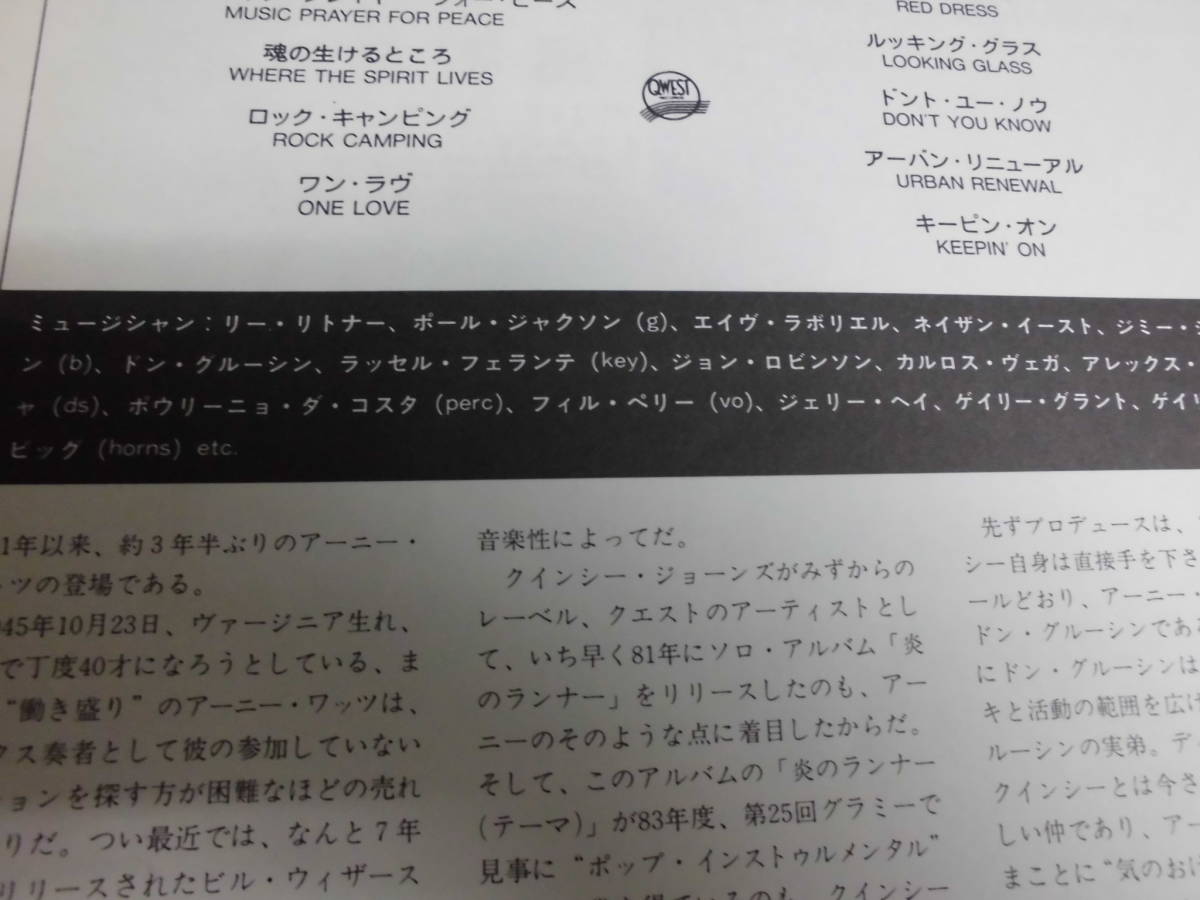 MUSIC PRAYER FOR PEACE
魂の生けるところ
WHERE THE SPIRIT LIVES
ロック・キャンピング
ROCK CAMPING
ワン・ラヴ
ONE LOVE
QWEST
RED DRESS
ルッキング・グラス
LOOKING GLASS
ドント・ユー・ノウ
DON'T YOU KNOW
アーバン・リニューアル
URBAN RENEWAL
キーピン・オン
KEEPIN' ON
ミュージシャン：リー・リトナー、ポール・ジャクソン (g)、エイヴ・ラボリエル、ネイザン・イースト、ジミー・
ン (b)、ドン・グルーシン、ラッセル・フェランテ (key)、ジョン・ロビンソン、カルロス・ヴェガ、アレックス・
ャ (ds)、ポウリーニョ・ダ・コスタ (perc)、フィル・ペリー (vo)、ジェリー・ヘイ、ゲイリー・グラント、ゲイリ
ビッグ (horns) etc.
1年以来、約3年半ぶりのアーニー・
ツの登場である。
45年10月23日、ヴァージニア生れ、
で丁度40才になろうとしている、ま
“働き盛り”のアーニー・ワッツは、
クス奏者として彼の参加していない
ョンを探す方が困難なほどの売れ
りだ。つい最近では、なんと7年
リリースされたビル・ウィザース
音楽性によってだ。
クインシー・ジョーンズがみずからの
レーベル、クエストのアーティストとし
て、いち早く81年にソロ・アルバム「炎
のランナー」をリリースしたのも、アー
ニーのそのような点に着目したからだ。
そして、このアルバムの「炎のランナー
(テーマ)」が83年度、第25回グラミーで
見事に“ポップ・インストゥルメンタル”
を得ているのも、クインシー
先ずプロデュースは、
シー自身は直接手を下さ
ールどおり、アーニー・
ドン・グルーシンであ
にドン・グルーシンは
キと活動の範囲を広げ
ルーシンの実弟。デ
クインシーとは今さ
しい仲であり、アー
まことに“気のおけ